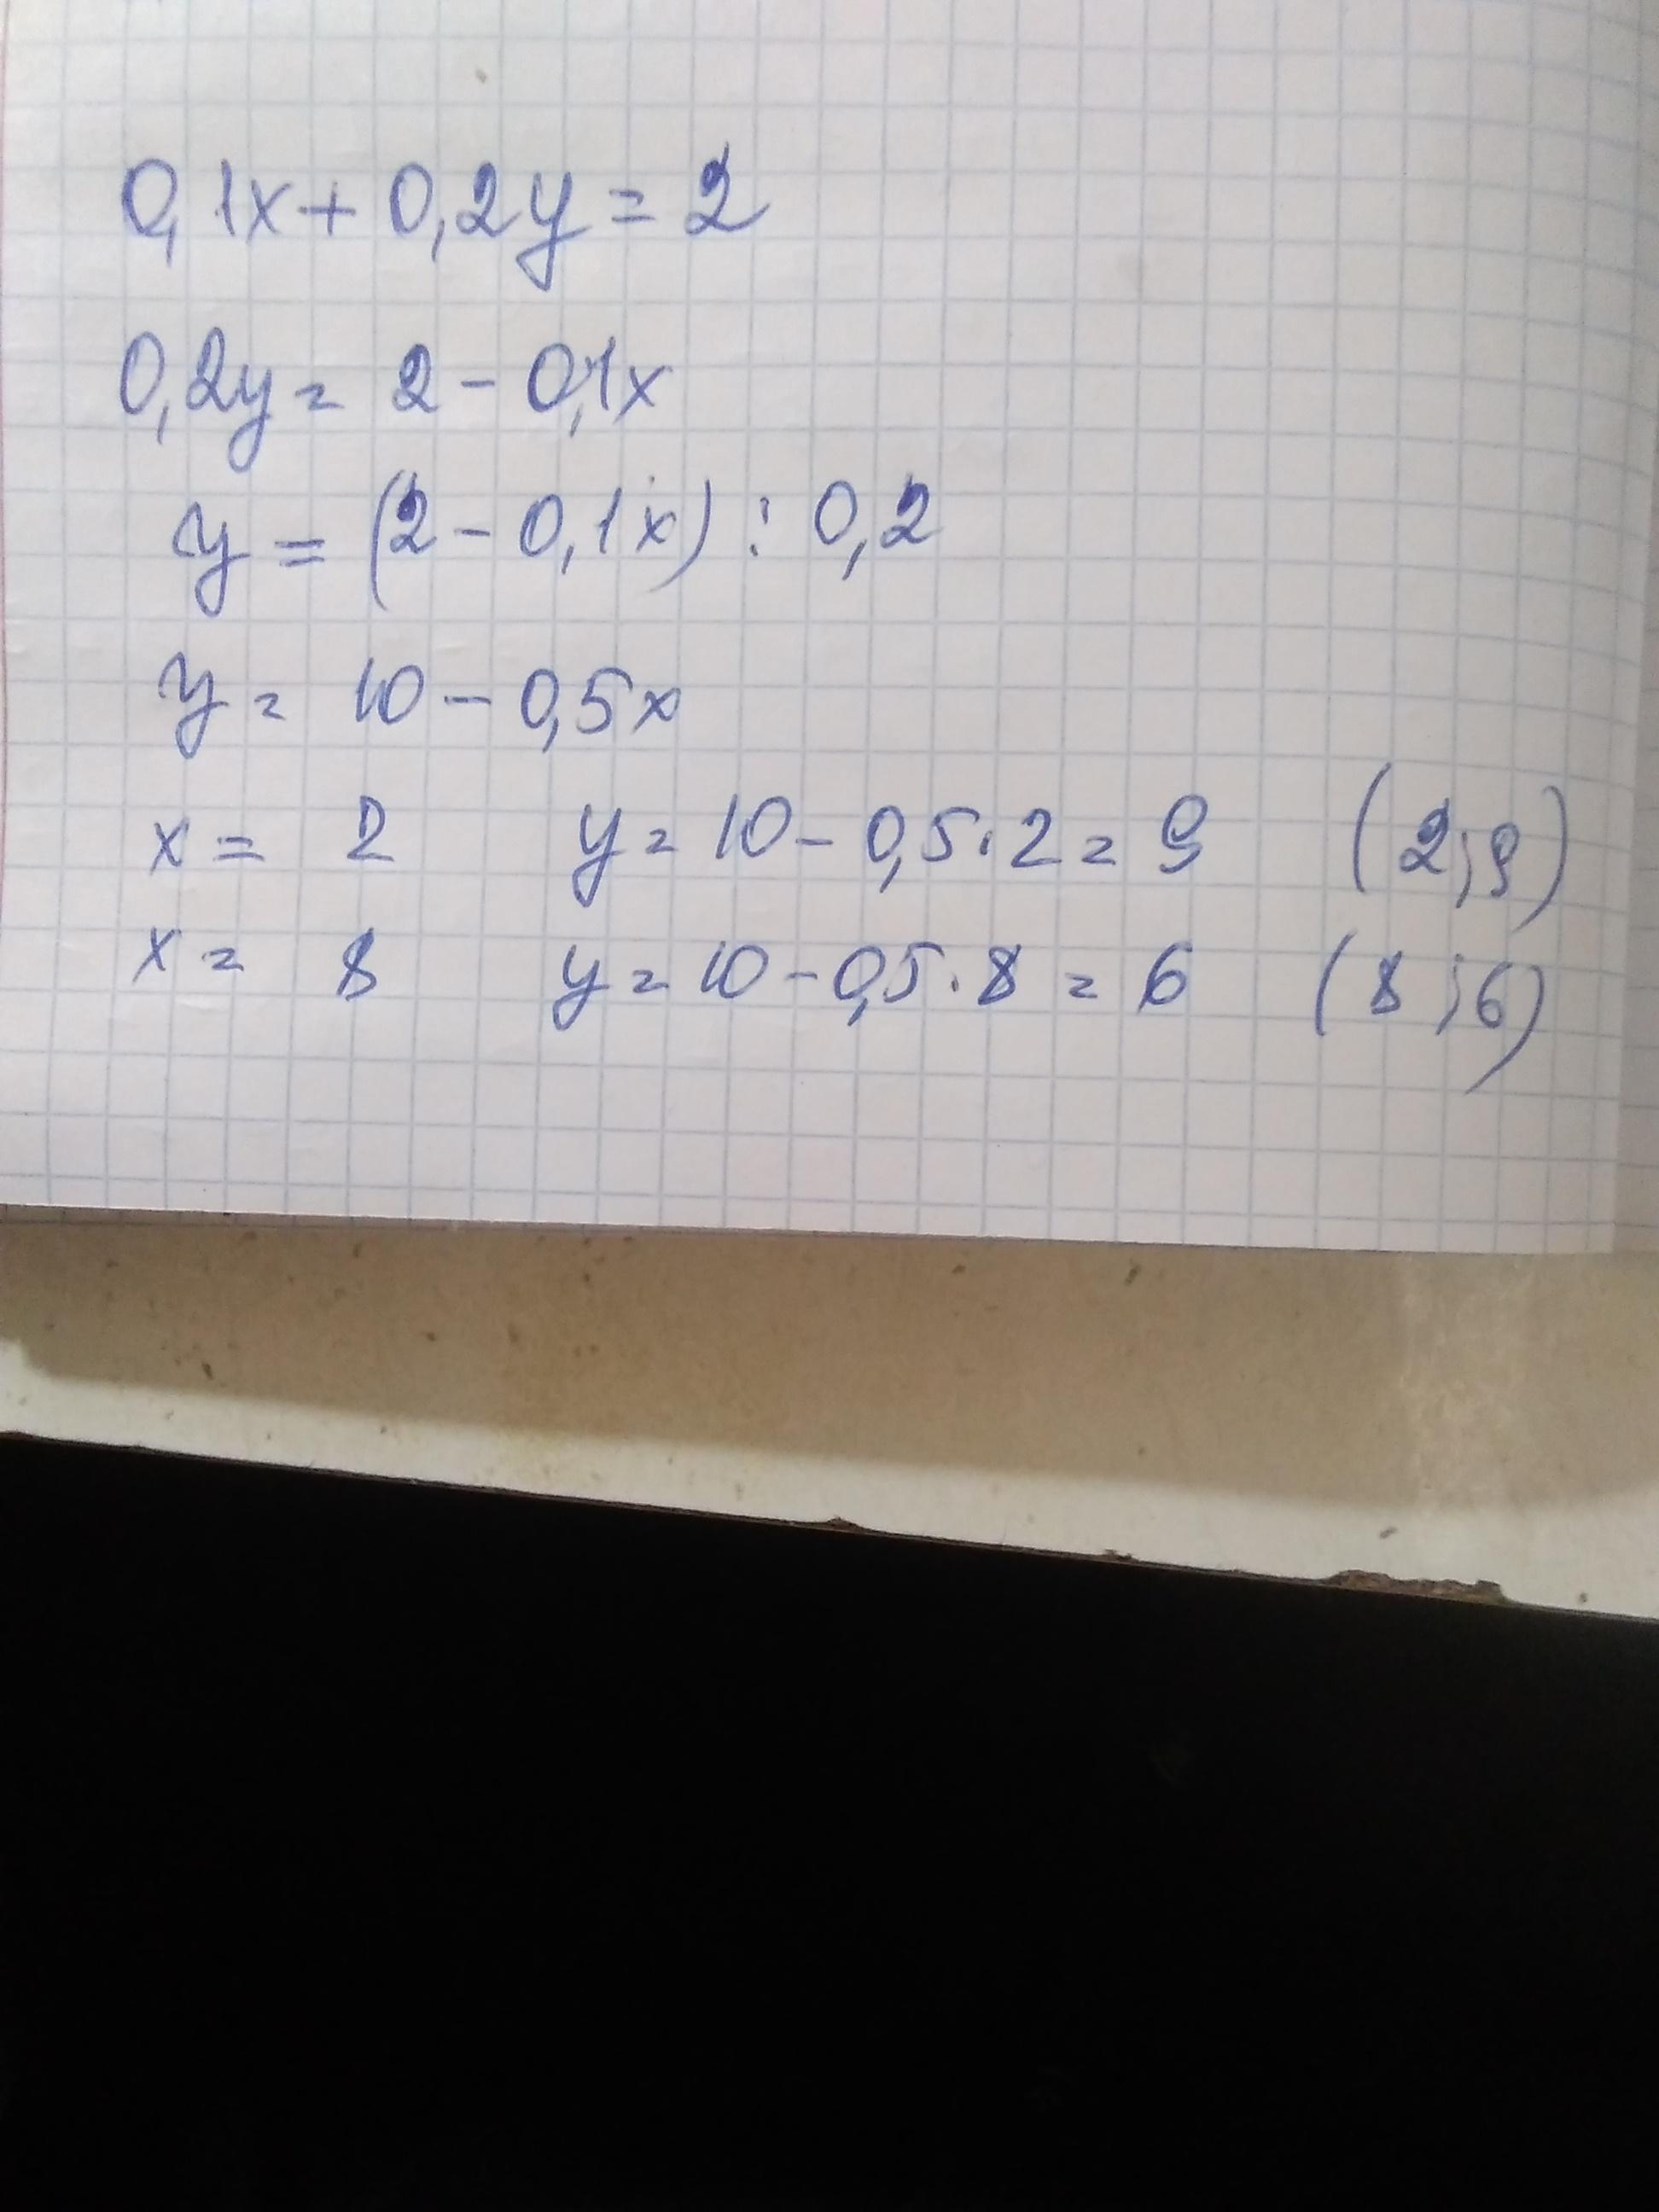 0,1x + 0,2y = 2
0,2y = 2 - 0,1x
y = (2 - 0,1x) : 0,2
y = 10 - 0,5x
x = 2 y = 10 - 0,5 · 2 = 9 (2;9)
x = 8 y = 10 - 0,5 · 8 = 6 (8;6)